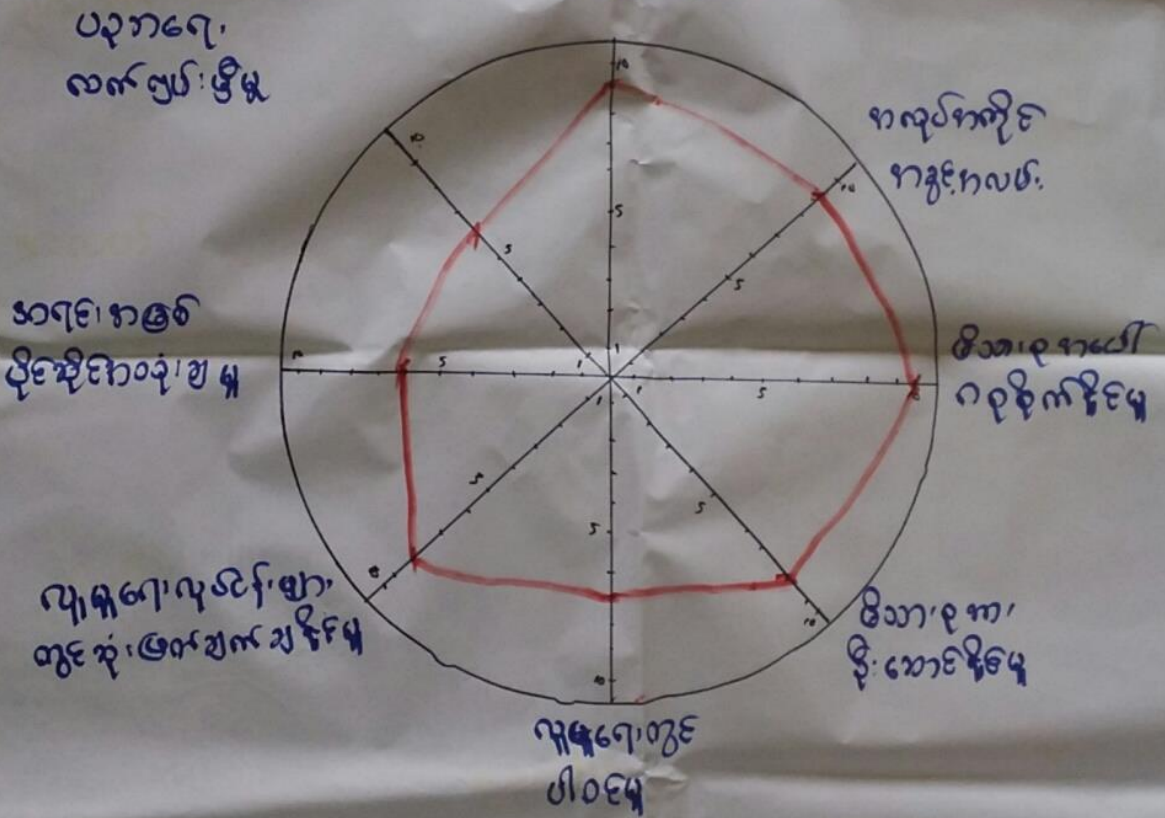 ပညာရေး
လက်လှမ်းမှီမှု
အလုပ်အကိုင်
အခွင့်အလမ်း
မိသားစုအပေါ်
ဂရုစိုက်နိုင်မှု
မိသားစုအား
ဦးဆောင်နိုင်မှု
လူမှုရေးတွင်
ပါဝင်မှု
လူမှုရေးလုပ်ငန်းများ
တွင်ဆုံးဖြတ်ချက်ချနိုင်မှု
အရင်းအမြစ်
ပိုင်ဆိုင်အသုံးချမှု
10
5
1
10
5
10
5
1
10
5
10
5
5
1
5
1
10
5